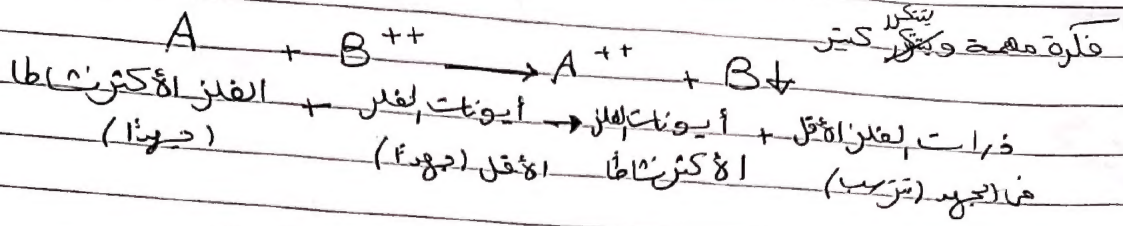 فكرة مهمة وبتتكرر كتير
A + B⁺⁺ → A⁺⁺ + B↓
الفلز الأكثر نشاطا + أيونات الفلز → أيونات الفلز + ذرات الفلز الأقل
(جهدًا) الأقل (جهدًا) الأكثر نشاطًا فى الجهد (تترسب)